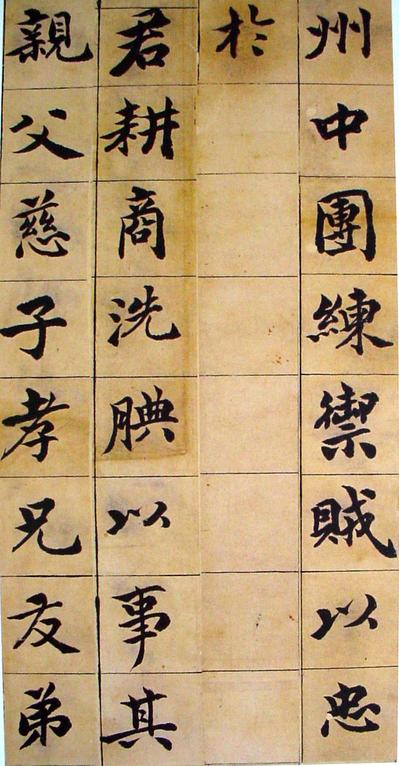 州中團練禦賊以忠
於
君耕商洗腆以事其
親父慈子孝兄友弟